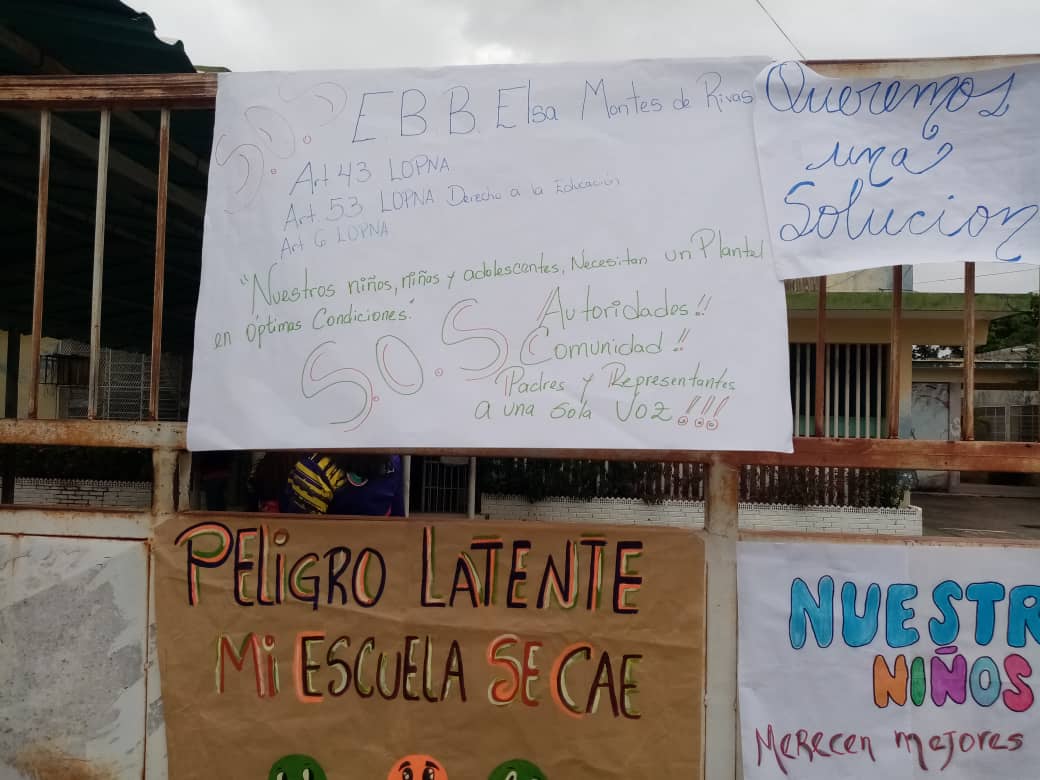 S.O.S
E B B. Elsa Montes de Rivas
Art 43 LOPNA
Art. 53 LOPNA Derecho a la Educación
Art 6 LOPNA
"Nuestros niños, niñas y adolescentes, Necesitan un Plantel
en óptimas Condiciones."
S.O.S
Autoridades!!
Comunidad!!
Padres y Representantes
a una sola Voz!!!
Queremos
una
Solucion
PELIGRO LATENTE
Mi ESCUELA SE CAE
NUESTR
NIÑOS
MeRecen mejores